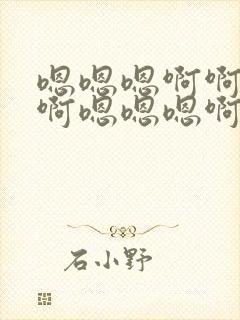 嗯嗯嗯啊啊
啊嗯嗯嗯啊
石小野